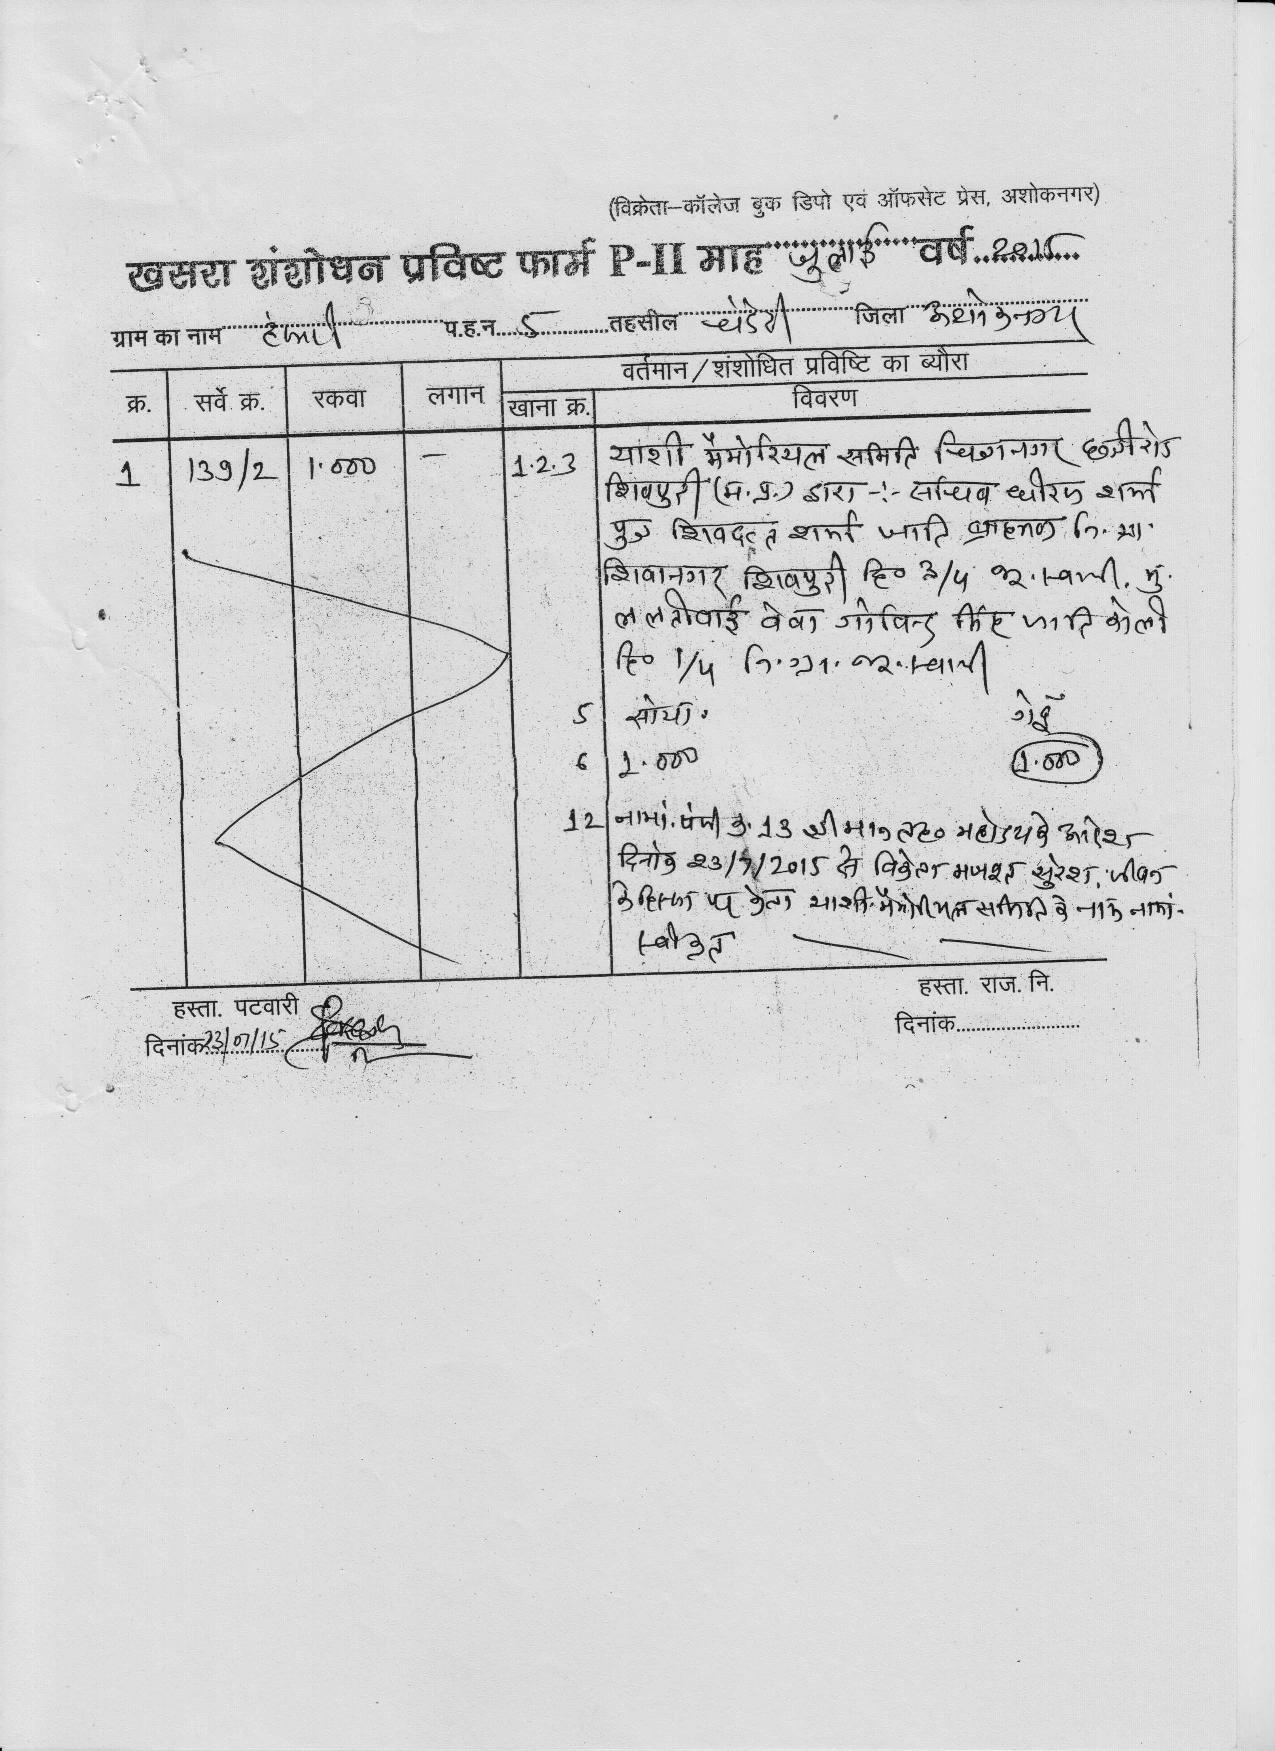 (विक्रेता–कॉलेज बुक डिपो एवं ऑफसेट प्रेस, अशोकनगर)
खसरा शंशोधन प्रविष्ट फार्म P-II माह जुलाई वर्ष 2015
ग्राम का नाम प.ह.न. 5 तहसील चंदेरी जिला अशोकनगर
वर्तमान/शंशोधित प्रविष्टि का ब्यौरा
क्र. सर्वे क्र. रकवा लगान खाना क्र. विवरण
1 139/2 1.000 – 1.2.3 याशी मैमोरियल समिति छत्री रोड
शिवपुरी (म.प्र.) द्वारा -:- सचिव धीरज शर्मा
पुत्र शिवदत्त शर्मा जाति ब्राहमण नि.ग्रा.
शिवानगर शिवपुरी हि० 3/4 भू.स्वामी. मु.
ललतीवाई वेवा गोविन्द सिंह जाति कोली
हि० 1/4 नि.ग्रा. भू.स्वामी
5 सोया. गेहूँ
6 1.000 1.000
12 नामां. पंजी क्र. 13 श्रीमान तह० महोदय के आदेश
दिनांक 23/7/2015 से विक्रेता सुरेश, जीवन
के हिस्सा पर क्रेता याशी मैमोरियल समिति के नाम नामां.
स्वीकृत
हस्ता. पटवारी हस्ता. राज. नि.
दिनांक 23/07/15 दिनांक